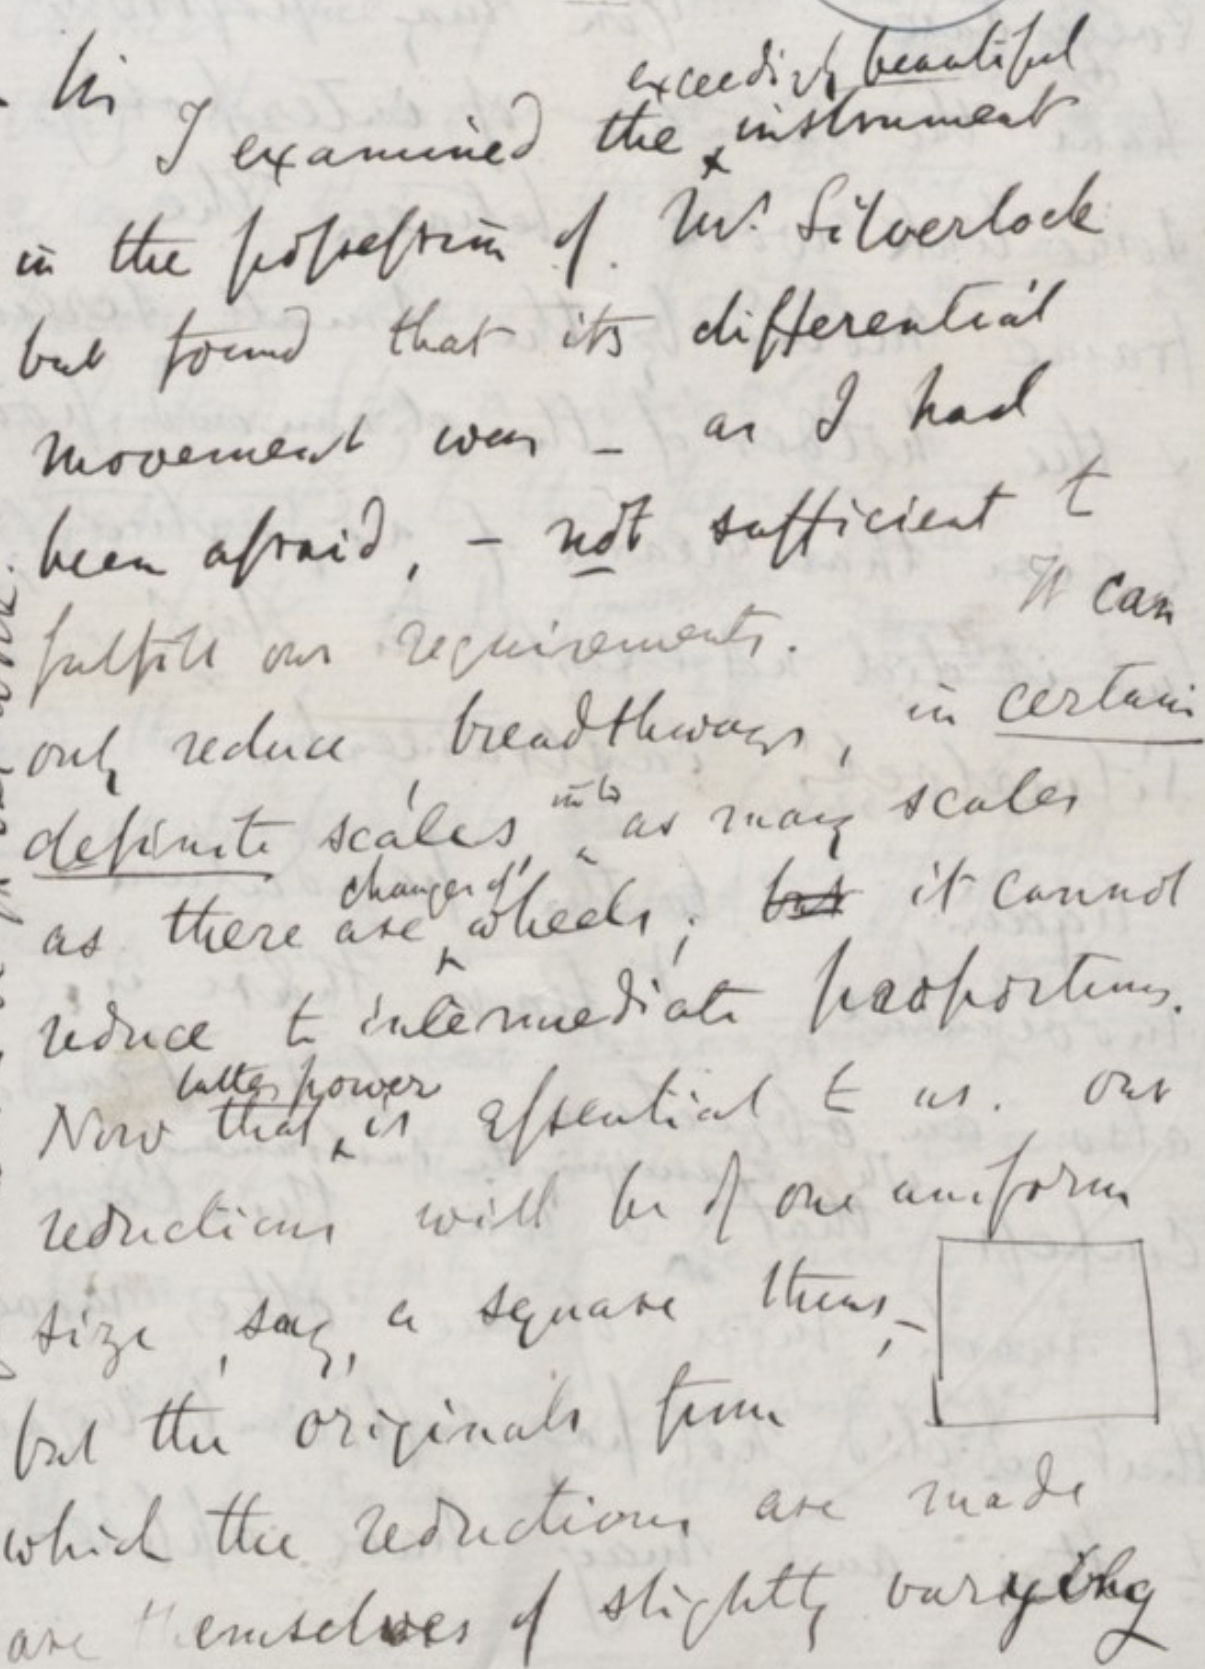 Sir
exceedingly beautiful
I examined the instrument
in the possession of Mr. Silverlock
but found that its differential
movement was – as I had
been afraid, – not sufficient to
fulfill our requirements. It can
only reduce breadthways, in certain
definite scales, into as many scales
as there are changes of wheels; but it cannot
reduce to intermediate proportions.
latter power
Now that is essential to us. Our
reductions will be of one uniform
size, say, a square thus, –
but the originals from
which the reductions are made
are themselves of slightly varying